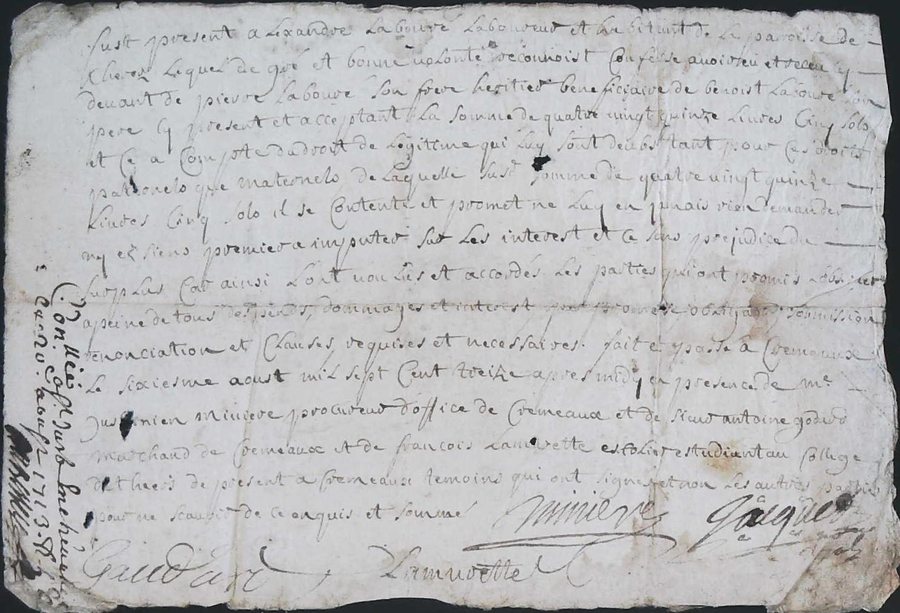 fust present alexandre labouré laboureur et habitant de la parroisse de
cherier lequel de gré et bonne volonté reconnoist confesse avoir eu et receu cy
devant de pierre labouré son frere heritier beneficiaire de benoist labouré son
pere cy present et acceptant la somme de quatre vingt quinze livres cinq sols
et ce a compte du droit de legitime qui luy sont deubs tant pour ces droits
paternels que maternels de laquelle sust somme de quatre vingt quinze
livres cinq sols il se contente et promet ne luy en jamais rien demander
ny es siens premier a imputer sur les interest et ce sans prejudice du
surplus car ainsi l'ont voulus et accordés les parties qui ont promis
a peine de tous despends dommages et interest par promesse obligaõn soumission
renonciation et clauses requises et necessaires. fait et passé a Cremeaux
le sixiesme aoust mil sept cent treize apres midy en presence de me
miniere procureur d'office de Cremeaux et de sieur antoine
marchand de Cremeaux et de françois Lamurette escolier estudiant au college
de thiers de present a Cremeaux temoins qui ont signés et non les autres parties
pour ne scavoir de ce enquis et sommé
miniere
Lamurette
1713